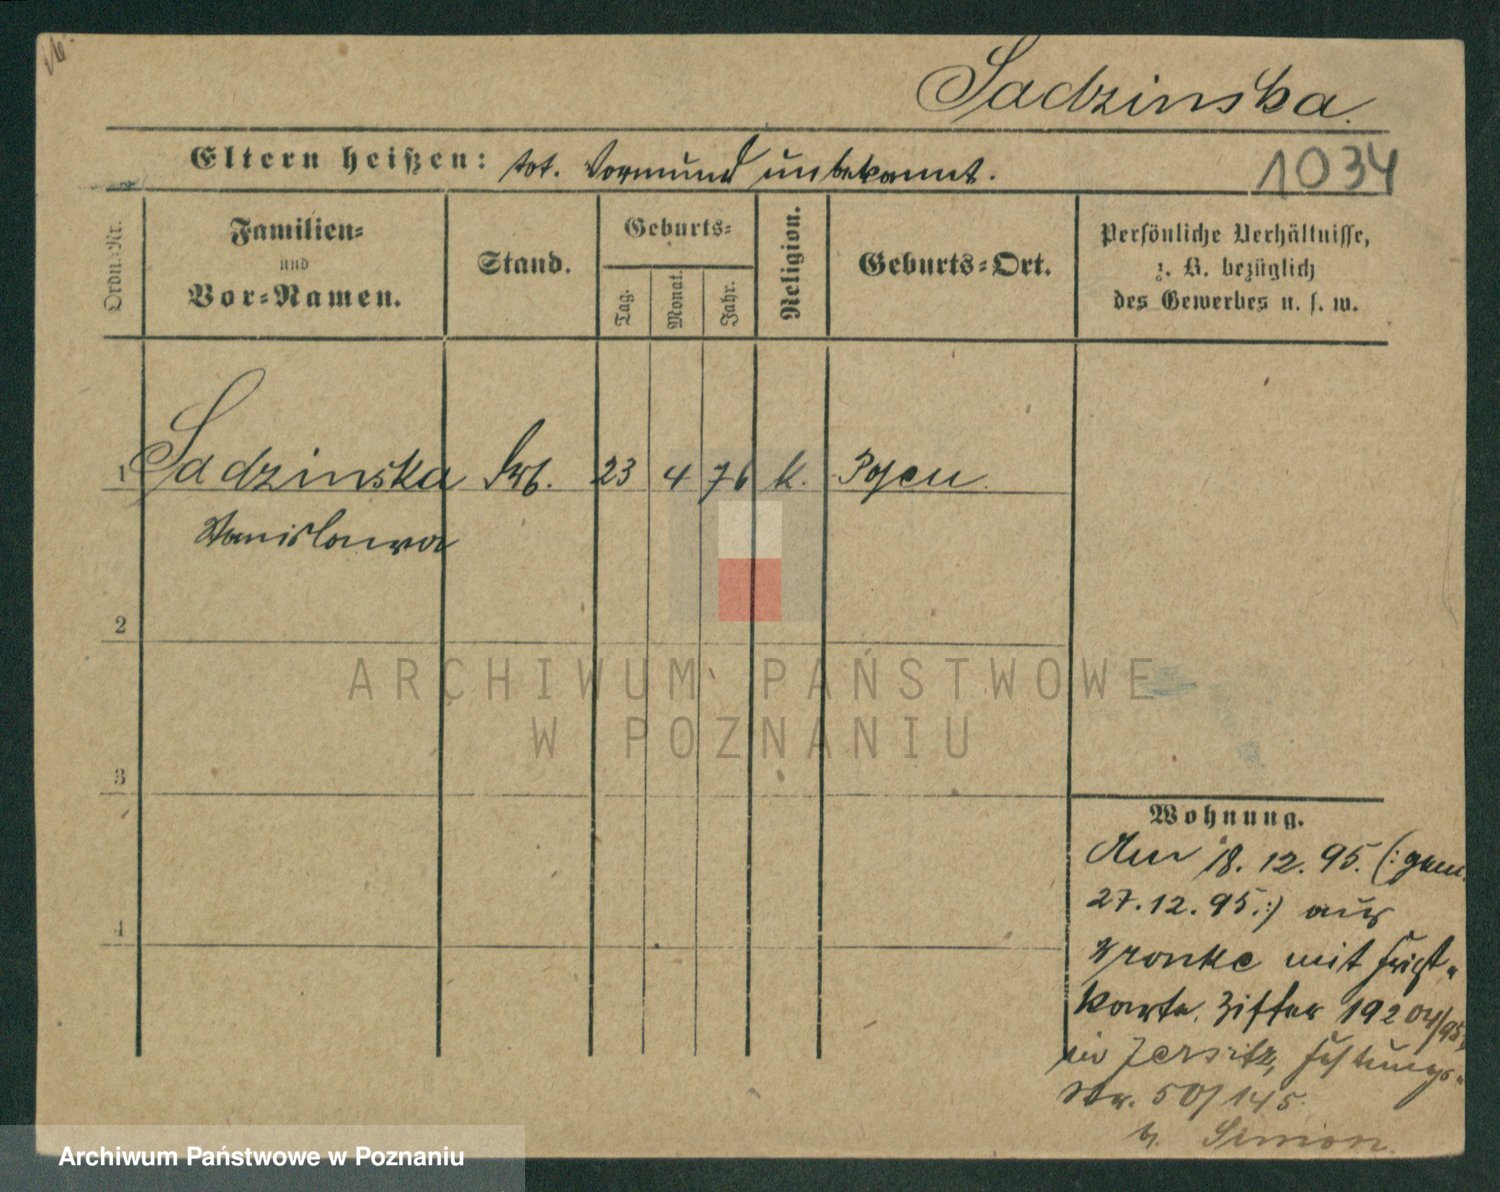 Sadzinska.
Eltern heißen: tot. Vormund unbekannt.
1034
Ordn.-Nr.
Familien-
und
Vor-Namen.
Stand.
Geburts-
Tag.
Monat.
Jahr.
Religion.
Geburts-Ort.
Persönliche Verhältnisse,
z. B. bezüglich
des Gewerbes u. s. w.
1 Sadzinska Arb. 23 4 76 k. Posen
Stanislawa
2
3
4
Wohnung.
18. 12. 95. (: gem.
27.12.95.:) aus
Wronke mit
karte. Ziffer 19204/95,
in Jersitz, Festungs-
str. 50/145.
b. Simon.
ARCHIWUM PAŃSTWOWE
W POZNANIU
Archiwum Państwowe w Poznaniu